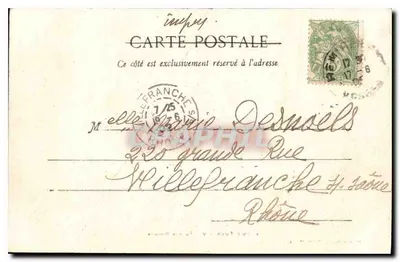 impr
CARTE POSTALE
Ce côté est exclusivement réservé à l'adresse
REMI
17 6
LEFRANCHE S
7/25
16 6
Melle Marie Desnoëls
220 grande Rue
Villefranche s/ Saône
Rhône